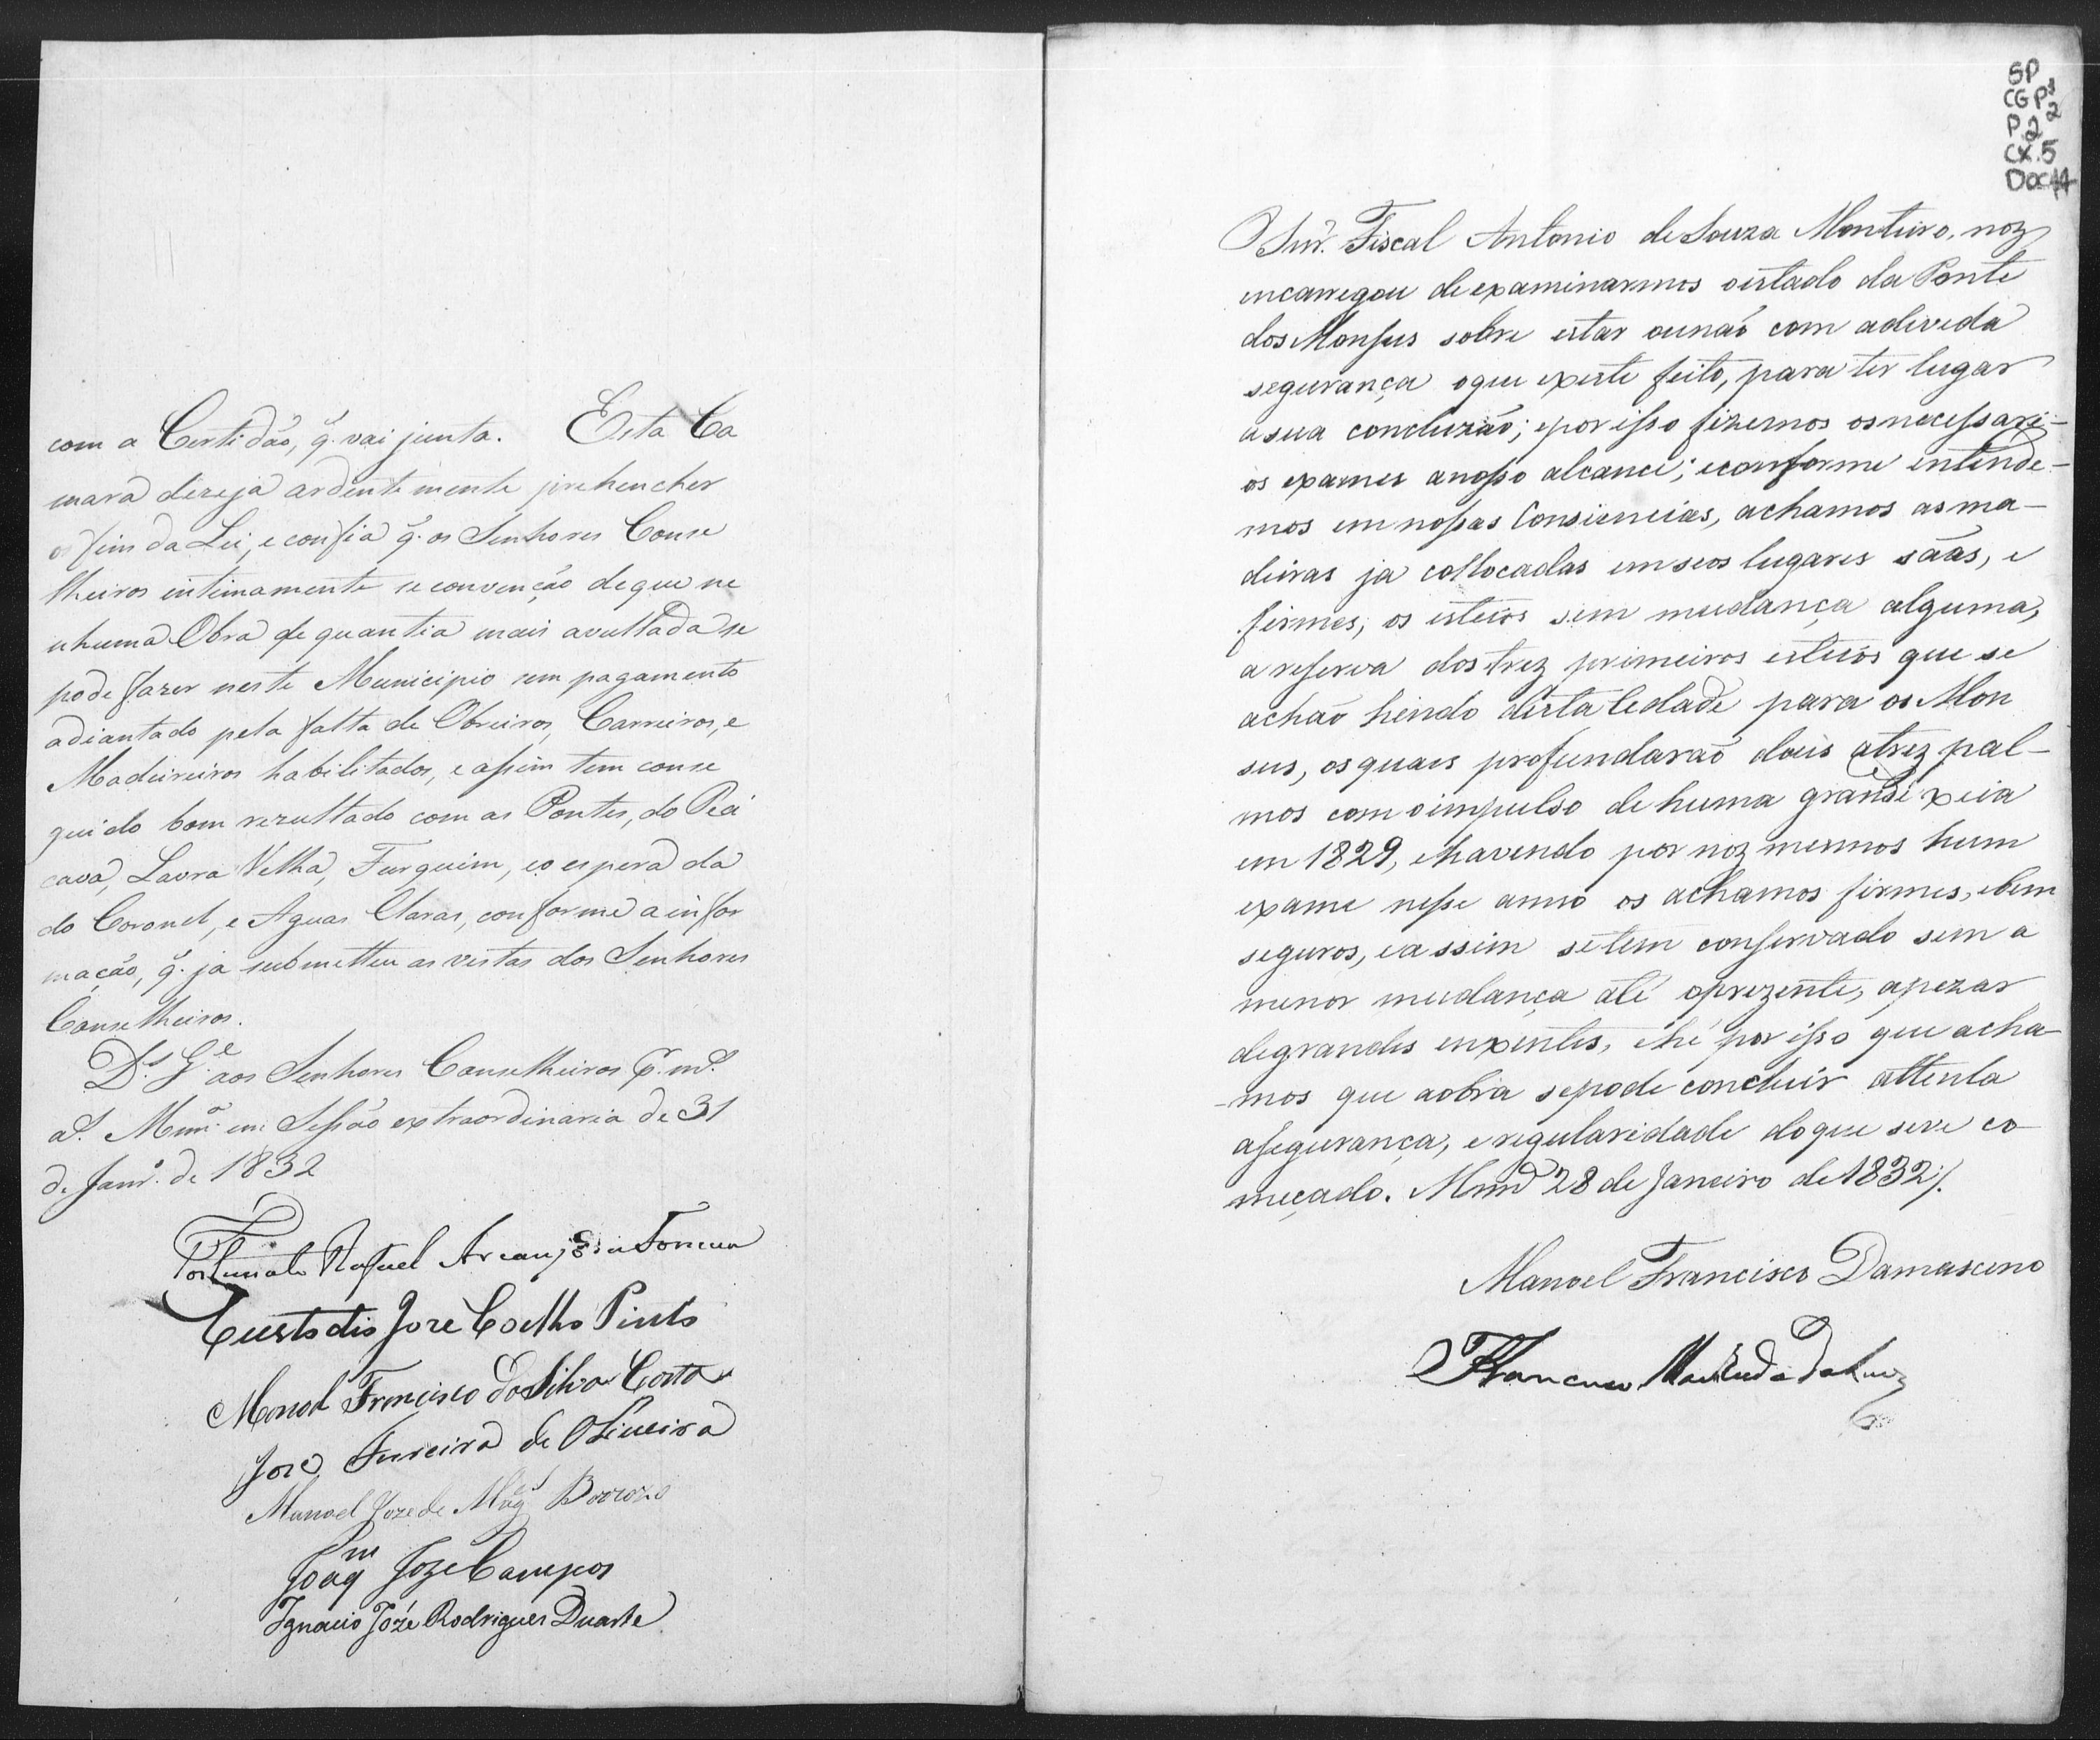 com a Certidão, q̃. vai junta. Esta Ca
mara dezeja ardentemente prehencher
os fins da Lei, e confia q̃. os Senhores Conse
lheiros intimamente se convenção de que ne
nhuma Obra de quantia mais avultada se
pode fazer neste Municipio sem pagamento
adiantado pela falta de Obreiros, Carreiros, e
Madeireiros habilitados, e assim tem conse
guido bom rezultado com as Pontes, do Pei
cava, Lavra Velha, Furquim, e o espera da
do Coronel, e Aguas Claras, conforme a infor
mação, q̃. ja submetteu as vistas dos Senhores
Conselheiros.
D.s G.e aos Senhores Conselheiros p. m.s
a.s Marn.ª em Sessão extraordinaria de 31
de Janr.º de 1832
Fortunato Rafael Arcanjo da Fonseca
Custodio Joze Coelho Pinto
Manoel Francisco da Silva Costa
Joze Ferreira de Oliveira
Manoel Joze de Mag.es Barrozo
Joaq.m Joze Campos
Ignacio Jozé Rodrigues Duarte
SP
CGP¹
P.2 2
CX.5
Doc 44
O Snr. Fiscal Antonio de Souza Monteiro, noz
encarregou de examinarmos o estado da Ponte
dos Monsus sobre estar ou naõ com a devida
segurança o que exeste feito, para ter lugar
a sua concluzaõ; e por isso fizemos os necessari-
os exames a nosso alcance; e conforme entende-
mos em nossas Consiencias, achamos as ma-
deiras ja collocadas em seos lugares sãas, e
firmes, os esteios sem mudança alguma,
a reserva dos trez primeiros esteios que se
achaõ hindo desta Cidade para os Mon
sus, os quais profundaraõ dois a trez pal-
mos com o impulso de huma grande xeia
em 1829, e havendo por noz mesmos hum
exame nesse anno os achamos firmes, e bem
seguros, e assim se tem conservado sem a
menor mudança até o prezente, apezar
de grandes enxentes, e hé por isso que acha-
-mos que a obra se pode concluir attenta
a segurança, e regularidade do que se ve co-
meçado. Mnnª 28 de Janeiro de 1832 /.
Manoel Francisco Damasceno
Francisco Machado da Luz